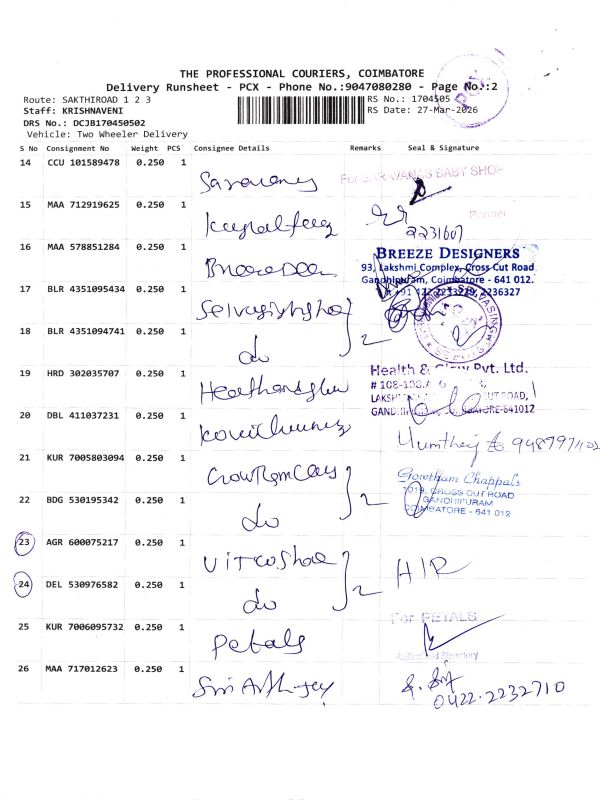 THE PROFESSIONAL COURIERS, COIMBATORE
Delivery Runsheet - PCX - Phone No.:9047080280 - Page No.:2
Route: SAKTHIROAD 1 2 3
RS No.: 1704505
Staff: KRISHNAVENI
RS Date: 27-Mar-2026
DRS No.: DCJB170450502
Vehicle: Two Wheeler Delivery
S No Consignment No Weight PCS Consignee Details Remarks Seal & Signature
14 CCU 101589478 0.250 1
BABY SHOP
15 MAA 712919625 0.250 1
Partner
2231607
16 MAA 578851284 0.250 1
BREEZE DESIGNERS
93, Lakshmi Complex, Cross Cut Road
Gandhipuram, Coimbatore - 641 012.
2236327
17 BLR 4351095434 0.250 1
18 BLR 4351094741 0.250 1 do 2
19 HRD 302035707 0.250 1
Health & Glow Pvt. Ltd.
20 DBL 411037231 0.250 1
21 KUR 7005803094 0.250 1
Gowtham Chappals
CROSS CUT ROAD
GANDHIPURAM
COIMBATORE - 641 012
22 BDG 530195342 0.250 1 do 2
23 AGR 600075217 0.250 1 H/R
24 DEL 530976582 0.250 1 do 2
25 KUR 7006095732 0.250 1 Petals
For PETALS
Authorised Signatory
26 MAA 717012623 0.250 1
0422-2232710